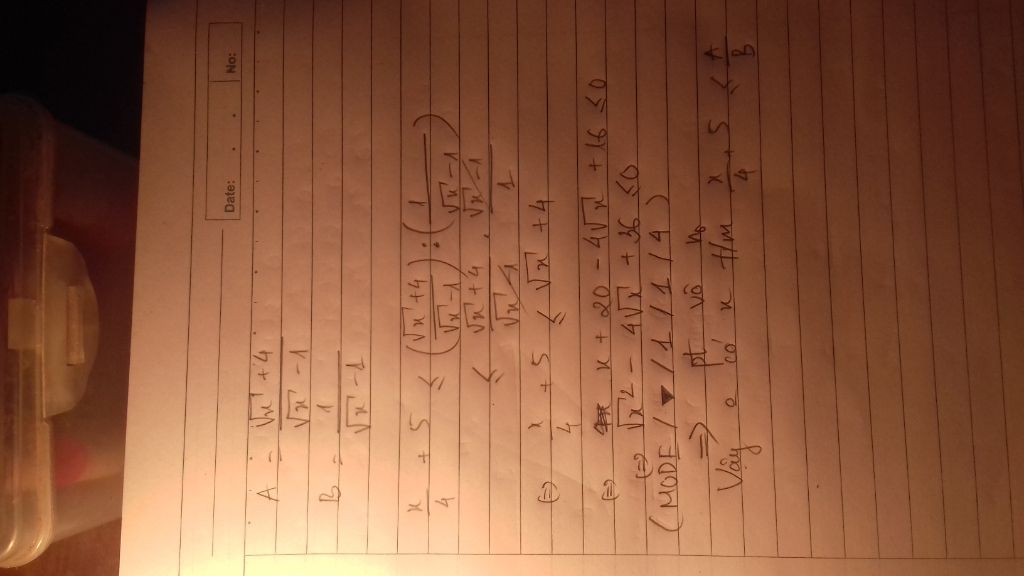 Date: . . No:
A = √x + 4 / √x - 1
B = 1 / √x - 1
x/4 + 5 ≤ (√x + 4 / √x - 1) : (1 / √x - 1)
≤ √x + 4 / √x - 1 . √x - 1 / 1
(=) x/4 + 5 ≤ √x + 4
(=) x + 20 - 4√x + 16 ≤ 0
(=) √x² - 4√x + 36 ≤ 0
(MODE / ▼ / 1 / 1 / 4)
=> pt vô no
Vậy o có x t/m x/4 + 5 ≤ A/B